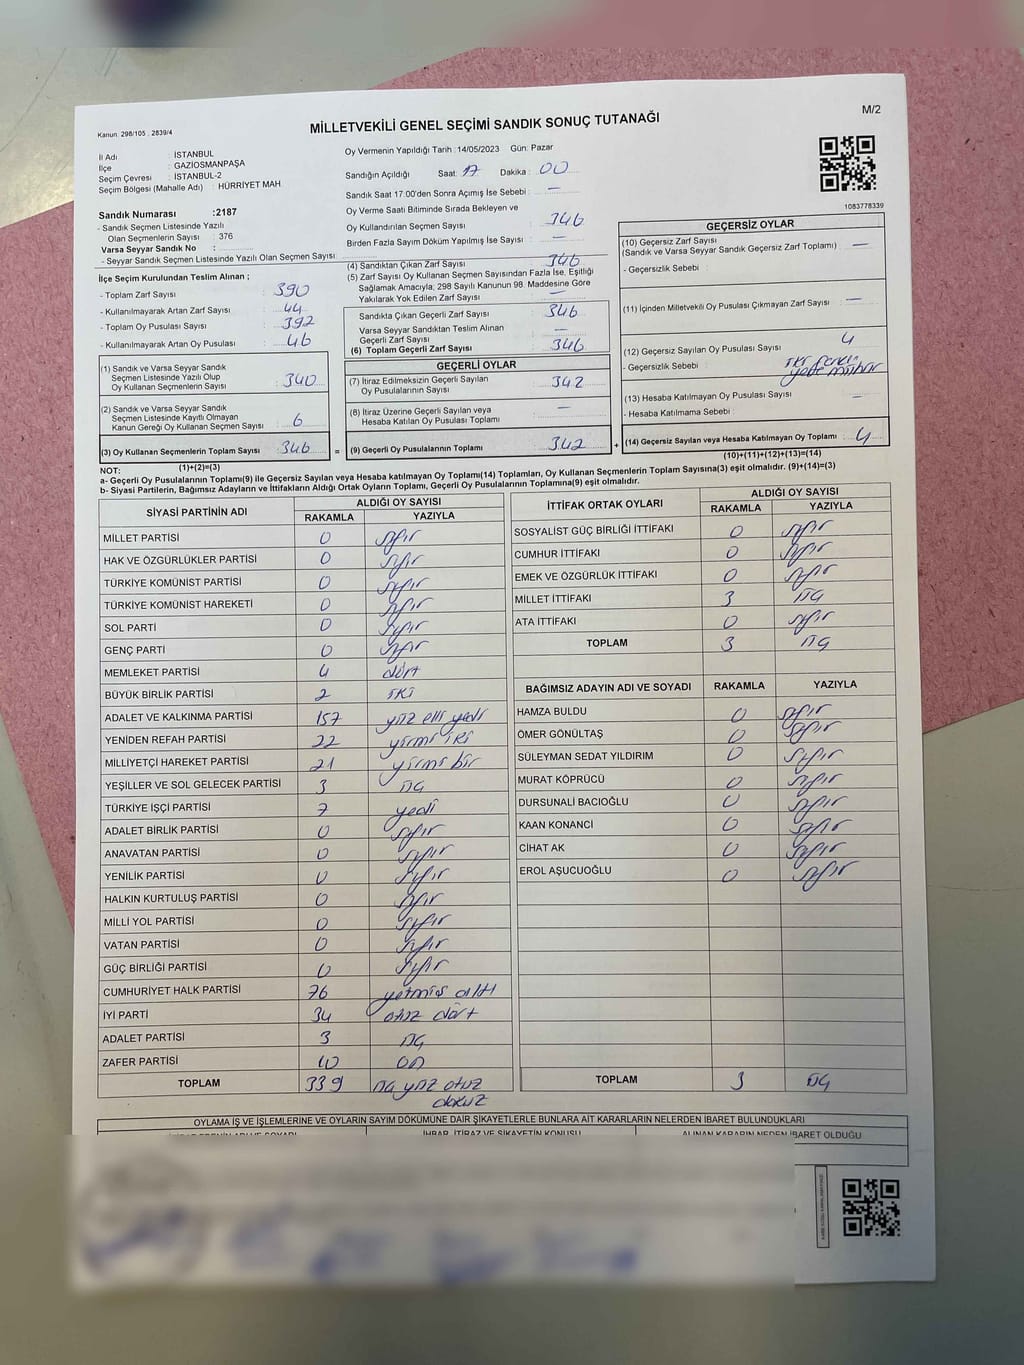 Kanun: 298/105 , 2839/4
M/2
MİLLETVEKİLİ GENEL SEÇİMİ SANDIK SONUÇ TUTANAĞI
İl Adı : İSTANBUL
İlçe : GAZİOSMANPAŞA
Seçim Çevresi : İSTANBUL-2
Seçim Bölgesi (Mahalle Adı) : HÜRRİYET MAH
Sandık Numarası :2187
- Sandık Seçmen Listesinde Yazılı
Olan Seçmenlerin Sayısı : 376
Varsa Seyyar Sandık No :
- Seyyar Sandık Seçmen Listesinde Yazılı Olan Seçmen Sayısı
Oy Vermenin Yapıldığı Tarih :14/05/2023 Gün: Pazar
Sandığın Açıldığı Saat: 17 Dakika : 00
Sandık Saat 17:00'den Sonra Açımış İse Sebebi : —
Oy Verme Saati Bitiminde Sırada Bekleyen ve
Oy Kullandırılan Seçmen Sayısı : 346
Birden Fazla Sayım Döküm Yapılmış İse Sayısı : —
1083778339
İlçe Seçim Kurulundan Teslim Alınan ;
- Toplam Zarf Sayısı : 390
- Kullanılmayarak Artan Zarf Sayısı : 44
- Toplam Oy Pusulası Sayısı : 392
- Kullanılmayarak Artan Oy Pusulası : 46
(1) Sandık ve Varsa Seyyar Sandık
Seçmen Listesinde Yazılı Olup
Oy Kullanan Seçmenlerin Sayısı : 340
(2) Sandık ve Varsa Seyyar Sandık
Seçmen Listesinde Kayıtlı Olmayan
Kanun Gereği Oy Kullanan Seçmen Sayısı : 6
(3) Oy Kullanan Seçmenlerin Toplam Sayısı : 346
(1)+(2)=(3)
(4) Sandıktan Çıkan Zarf Sayısı : 346
(5) Zarf Sayısı Oy Kullanan Seçmen Sayısından Fazla İse, Eşitliği
Sağlamak Amacıyla; 298 Sayılı Kanunun 98. Maddesine Göre
Yakılarak Yok Edilen Zarf Sayısı : —
Sandıkta Çıkan Geçerli Zarf Sayısı : 346
Varsa Seyyar Sandıktan Teslim Alınan
Geçerli Zarf Sayısı : —
(6) Toplam Geçerli Zarf Sayısı : 346
GEÇERLİ OYLAR
(7) İtiraz Edilmeksizin Geçerli Sayılan
Oy Pusulalarının Sayısı : 342
(8) İtiraz Üzerine Geçerli Sayılan veya
Hesaba Katılan Oy Pusulası Toplamı : —
= (9) Geçerli Oy Pusulalarının Toplamı : 342
GEÇERSİZ OYLAR
(10) Geçersiz Zarf Sayısı
(Sandık ve Varsa Seyyar Sandık Geçersiz Zarf Toplamı) : —
- Geçersizlik Sebebi :
(11) İçinden Milletvekili Oy Pusulası Çıkmayan Zarf Sayısı : —
(12) Geçersiz Sayılan Oy Pusulası Sayısı : 4
- Geçersizlik Sebebi :
(13) Hesaba Katılmayan Oy Pusulası Sayısı : —
- Hesaba Katılmama Sebebi :
+ (14) Geçersiz Sayılan veya Hesaba Katılmayan Oy Toplamı : 4
(10)+(11)+(12)+(13)=(14)
NOT:
a- Geçerli Oy Pusulalarının Toplamı(9) ile Geçersiz Sayılan veya Hesaba katılmayan Oy Toplamı(14) Toplamları, Oy Kullanan Seçmenlerin Toplam Sayısına(3) eşit olmalıdır. (9)+(14)=(3)
b- Siyasi Partilerin, Bağımsız Adayların ve İttifakların Aldığı Ortak Oyların Toplamı, Geçerli Oy Pusulalarının Toplamına(9) eşit olmalıdır.
SİYASİ PARTİNİN ADI ALDIĞI OY SAYISI
RAKAMLA YAZIYLA
MİLLET PARTİSİ 0 sıfır
HAK VE ÖZGÜRLÜKLER PARTİSİ 0 sıfır
TÜRKİYE KOMÜNİST PARTİSİ 0 sıfır
TÜRKİYE KOMÜNİST HAREKETİ 0 sıfır
SOL PARTİ 0 sıfır
GENÇ PARTİ 0 sıfır
MEMLEKET PARTİSİ 4 dört
BÜYÜK BİRLİK PARTİSİ 2 iki
ADALET VE KALKINMA PARTİSİ 157 yüz elli yedi
YENİDEN REFAH PARTİSİ 22 yirmi iki
MİLLİYETÇİ HAREKET PARTİSİ 21 yirmi bir
YEŞİLLER VE SOL GELECEK PARTİSİ 3 üç
TÜRKİYE İŞÇİ PARTİSİ 7 yedi
ADALET BİRLİK PARTİSİ 0 sıfır
ANAVATAN PARTİSİ 0 sıfır
YENİLİK PARTİSİ 0 sıfır
HALKIN KURTULUŞ PARTİSİ 0 sıfır
MİLLİ YOL PARTİSİ 0 sıfır
VATAN PARTİSİ 0 sıfır
GÜÇ BİRLİĞİ PARTİSİ 0 sıfır
CUMHURİYET HALK PARTİSİ 76 yetmiş altı
İYİ PARTİ 34 otuz dört
ADALET PARTİSİ 3 üç
ZAFER PARTİSİ 10 on
TOPLAM 339 üç yüz otuz
dokuz
İTTİFAK ORTAK OYLARI ALDIĞI OY SAYISI
RAKAMLA YAZIYLA
SOSYALİST GÜÇ BİRLİĞİ İTTİFAKI 0 sıfır
CUMHUR İTTİFAKI 0 sıfır
EMEK VE ÖZGÜRLÜK İTTİFAKI 0 sıfır
MİLLET İTTİFAKI 3 üç
ATA İTTİFAKI 0 sıfır
TOPLAM 3 üç
BAĞIMSIZ ADAYIN ADI VE SOYADI RAKAMLA YAZIYLA
HAMZA BULDU 0 sıfır
ÖMER GÖNÜLTAŞ 0 sıfır
SÜLEYMAN SEDAT YILDIRIM 0 sıfır
MURAT KÖPRÜCÜ 0 sıfır
DURSUNALİ BACIOĞLU 0 sıfır
KAAN KONANCİ 0 sıfır
CİHAT AK 0 sıfır
EROL AŞUCUOĞLU 0 sıfır
TOPLAM 3 üç
OYLAMA İŞ VE İŞLEMLERİNE VE OYLARIN SAYIM DÖKÜMÜNE DAİR ŞİKAYETLERLE BUNLARA AİT KARARLARIN NELERDEN İBARET BULUNDUKLARI
İHBAR, İTİRAZ VE ŞİKAYETİN KONUSU ALINAN KARARIN NEDEN İBARET OLDUĞU